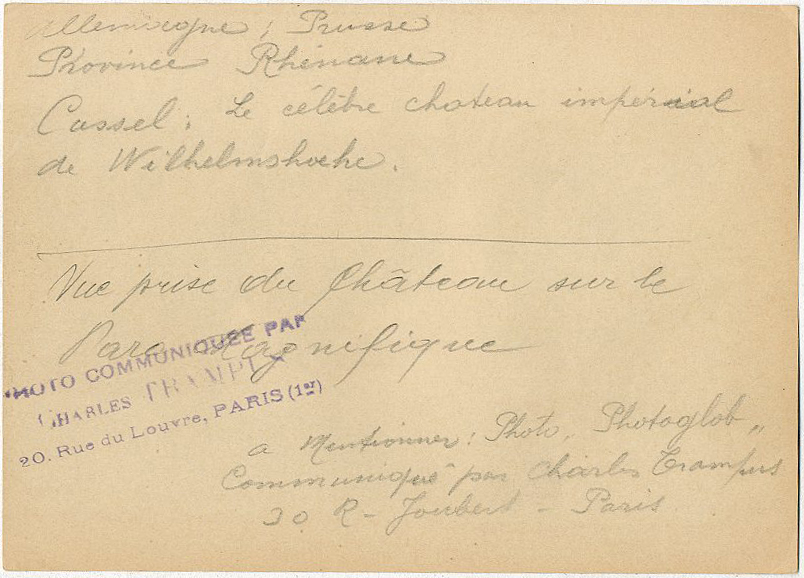 Allemagne ; Prusse
Province Rhénane
Cassel : Le célèbre chateau impérial
de Wilhelmshoehe.
Vue prise du Château sur le
Parc Magnifique
PHOTO COMMUNIQUÉE PAR
CHARLES TRAMPU
20, Rue du Louvre, PARIS (1er)
a Mentionner : Photo, Photoglob „
Communiqué par Charles Trampus
30 R - Joubert - Paris